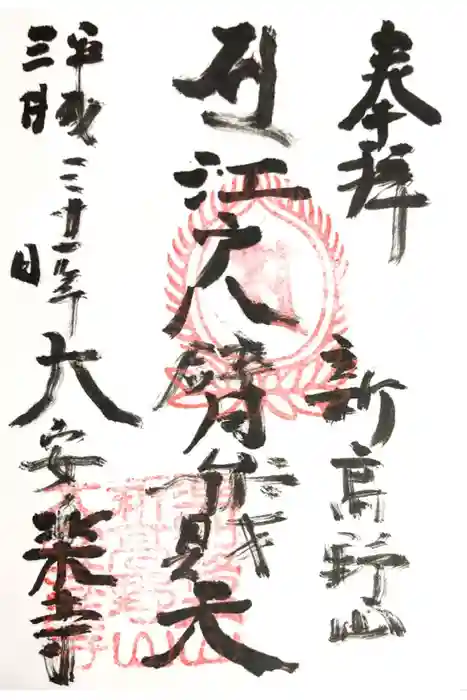 奉拝 新高野山
江戸八臂辨財天
平成三十一年
三月 日
大安楽寺